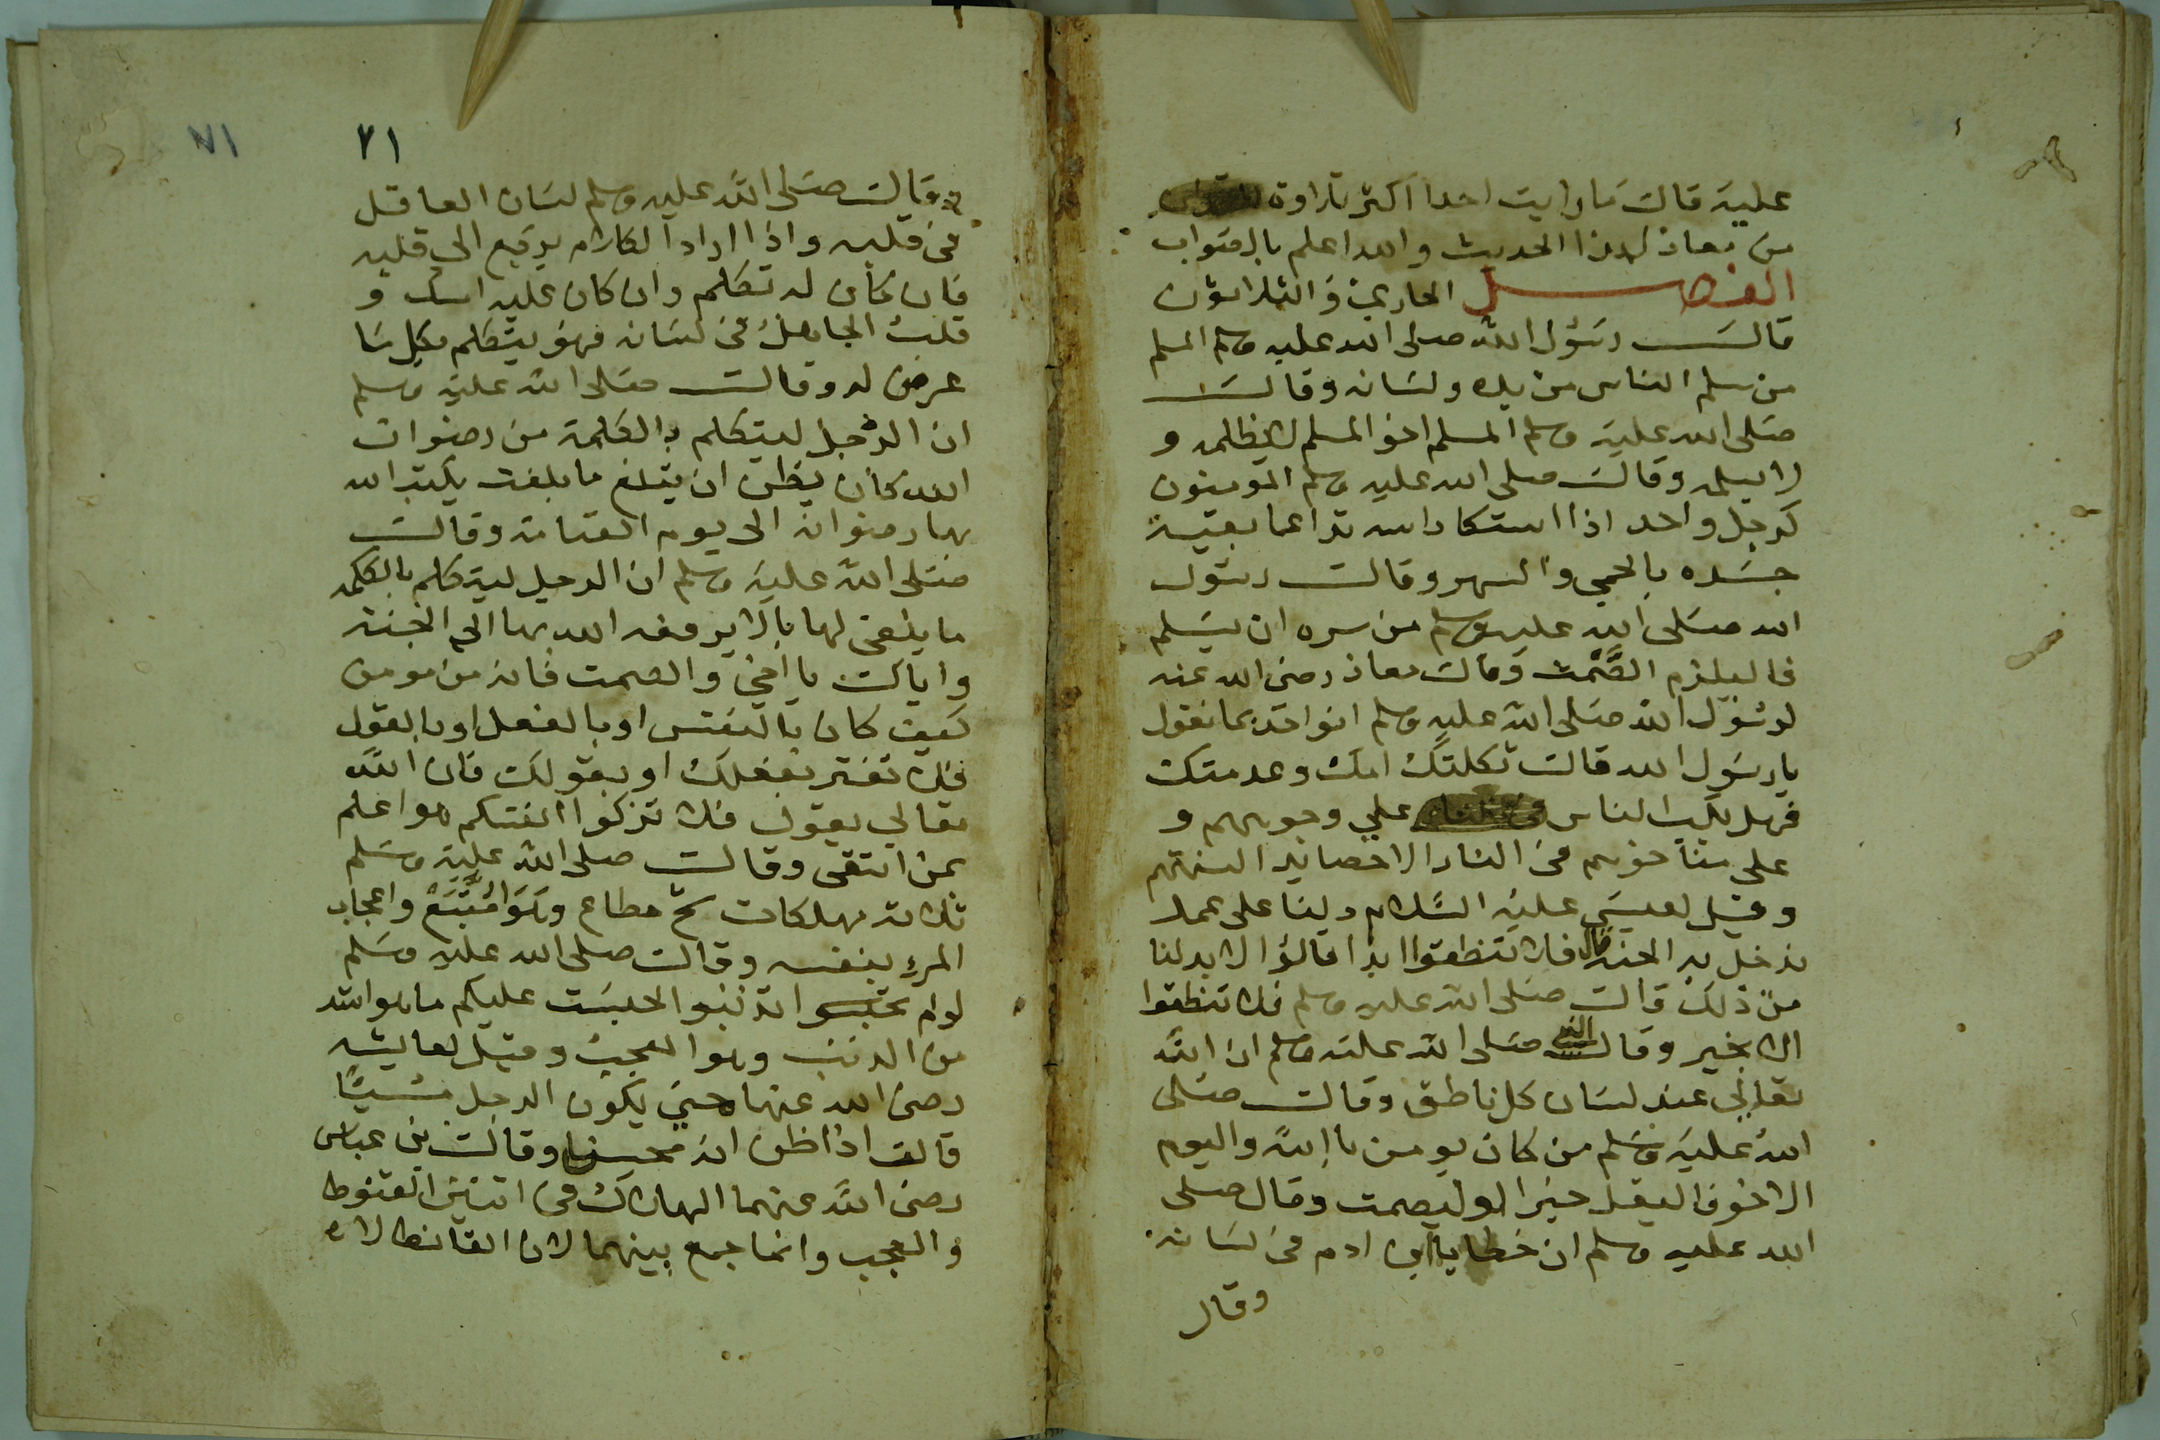 عليه قال ما رايت احدا اكثر تلاوة للقران
من معاذ لهذا الحديث والله اعلم بالصواب
الفصل الحادي والثلاثون
قال رسول الله صلى الله عليه وسلم المسلم
من سلم الناس من يده ولسانه وقال
صلى الله عليه وسلم المسلم اخو المسلم لا يظلمه و
لا يسلمه وقال صلى الله عليه وسلم المومنون
كرجل واحد اذا اشتكا راسه تداعا بقية
جسده بالحمى والسهر وقال رسول
الله صلى الله عليه وسلم من سره ان يسلم
فاليلزم الصمت وقال معاذ رضى الله عنه
لرسول الله صلى الله عليه وسلم انواخذ بما نقول
يا رسول الله قال ثكلتك امك وعدمتك
فهل يكب الناس على وجوههم و
على مناخرهم فى النار الا حصايد السنتهم
وقيل لعيسى عليه السلام دلينا على عمل
ندخل به الجنة قال فلا تنطقوا ابدا قالوا لا بد لنا
من ذلك قال صلى الله عليه وسلم فلا تنطقوا
الا بخير وقال النبى صلى الله عليه وسلم ان الله
تعالى عند لسان كل ناطق وقال صلى
الله عليه وسلم من كان يومن بالله واليوم
الاخر فاليقل خيرا او ليصمت وقال صلى
الله عليه وسلم ان خطايا ابن ادم فى لسانه
وقال
٧١ ٢١
وقال صلى الله عليه وسلم لسان العاقل
فى قلبه واذا اراد الكلام يرجع الى قلبه
فان كان له تكلم وان كان عليه امسك و
قلب الجاهل فى لسانه فهو يتكلم بكل ما
عرض له وقال صلى الله عليه وسلم
ان الرجل ليتكلم بالكلمة من رضوان
الله كان يظن ان يبلغ ما بلغت يكتب الله
بها رضوانه الى يوم القيامة وقال
صلى الله عليه وسلم ان الرجل ليتكلم بالكلمة
ما يلقى لها بالا يرفعه الله بها الى الجنة
واياك يا اخي والصمت فانه من مومن
كيف كان بالنفس او بالفعل او بالقول
فلا تغتر بفعلك او بقولك فان الله
تعالى يقول فلا تزكوا انفسكم هو اعلم
بمن اتقى وقال صلى الله عليه وسلم
ثلاثة مهلكات شح مطاع وهوا متبع واعجاب
المرء بنفسه وقال صلى الله عليه وسلم
لو لم تذنبوا لخشيت عليكم ما هو اشد
من الذنب وهو العجب وقيل لعايشه
رضى الله عنها متي يكون الرجل مسيئا
قالت اذا ظن انه محسن وقال بن عباس
رضى الله عنهما الهلاك فى اثنين القنوط
والعجب وانما جمع بينهما لان القانط لا